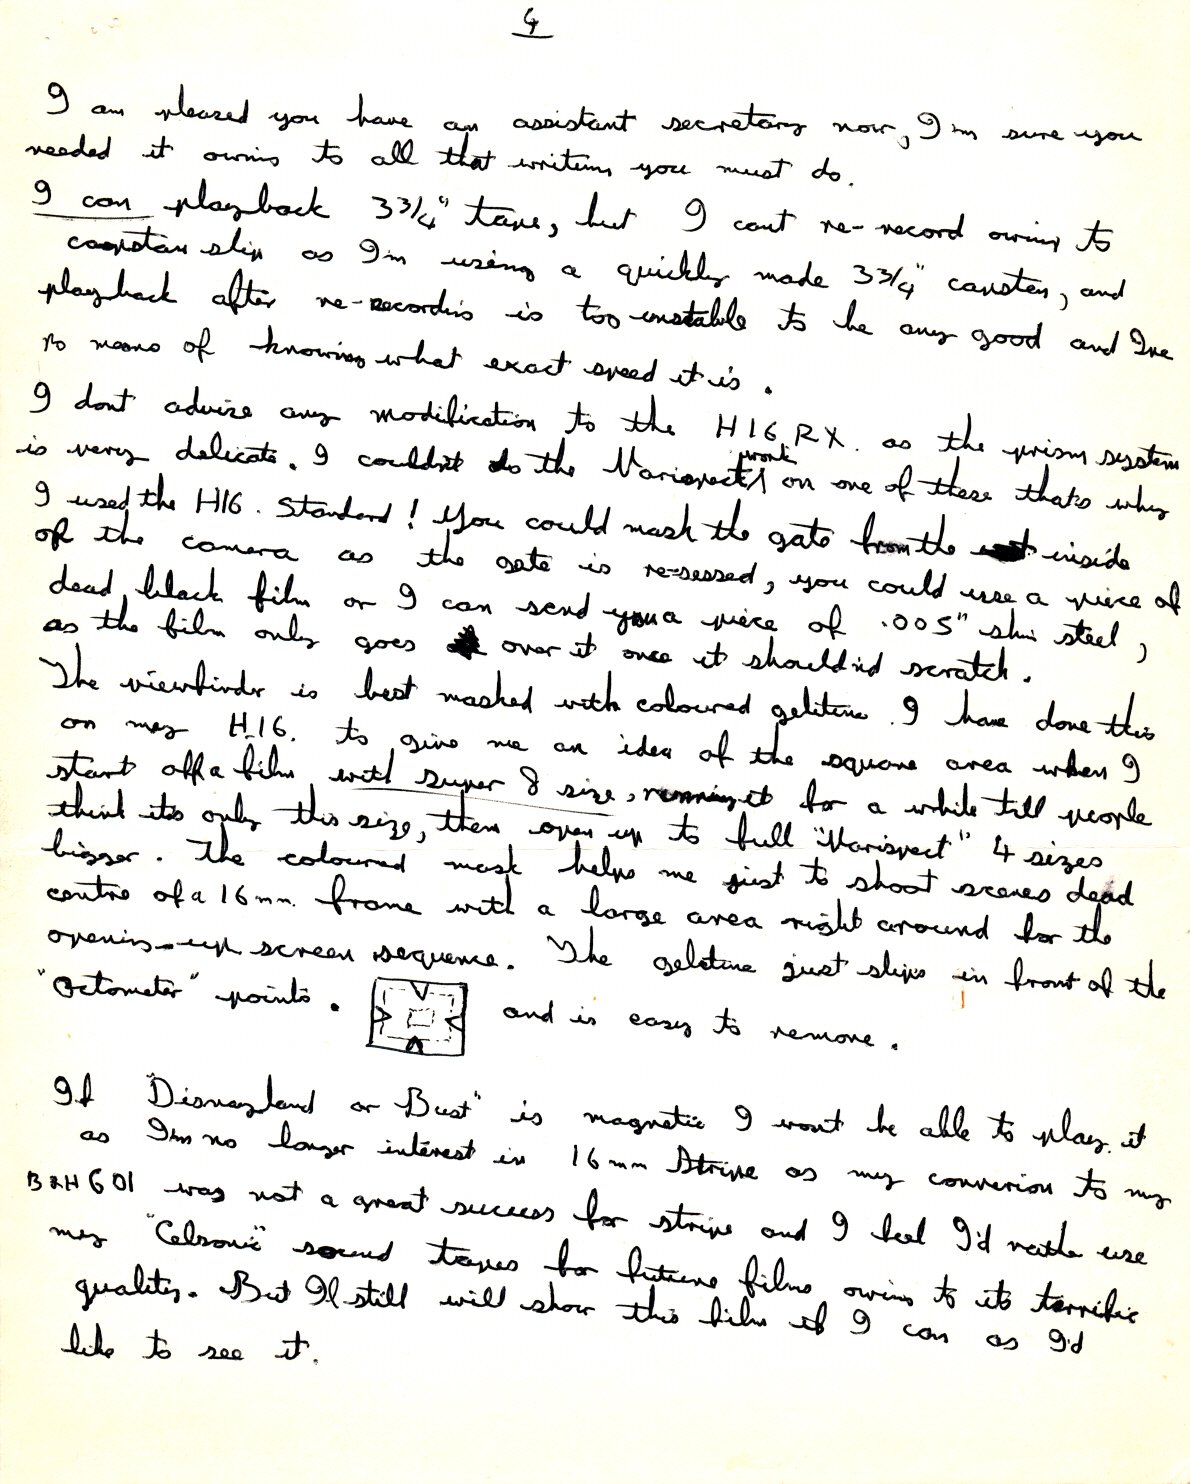 4
I am pleased you have an assistant secretary now, I'm sure you
needed it owing to all that writing you must do.
I can playback 3 3/4" tape, but I cant re-record owing to
capstan slip as I'm using a quickly made 3 3/4" capstan, and
playback after re-recording is too unstable to be any good and Ive
no means of knowing what exact speed it is.
I dont advise any modification to the H16 RX. as the prism system
is very delicate. I couldnt do the Varispect work on one of these thats why
I used the H16. Standard! You could mask the gate from the inside
of the camera as the gate is re-sessed, you could use a piece of
dead black film or I can send you a piece of .005" shim steel,
as the film only goes over it once it shouldnd scratch.
The viewfinder is best masked with coloured gelitine. I have done this
on my H.16. to give me an idea of the square area when I
start off a film with super 8 size, running it for a while till people
think its only this size, then open up to full "Varispect" 4 sizes
bigger. The coloured mask helps me just to shoot scenes dead
centre of a 16mm. frame with a large area right around for the
opening-up screen sequence. The gelatine just slips in front of the
"Octometer" points. and is easy to remove.
If "Disneyland or Bust" is magnetic I wont be able to play it
as I'm no longer interest in 16mm Stripe as my converion to my
B&H 601 was not a great success for stripe and I feel I'd rather use
my "Celsonic" sound tapes for future films owing to its terrific
quality. But Il still will show this film if I can as I'd
like to see it.